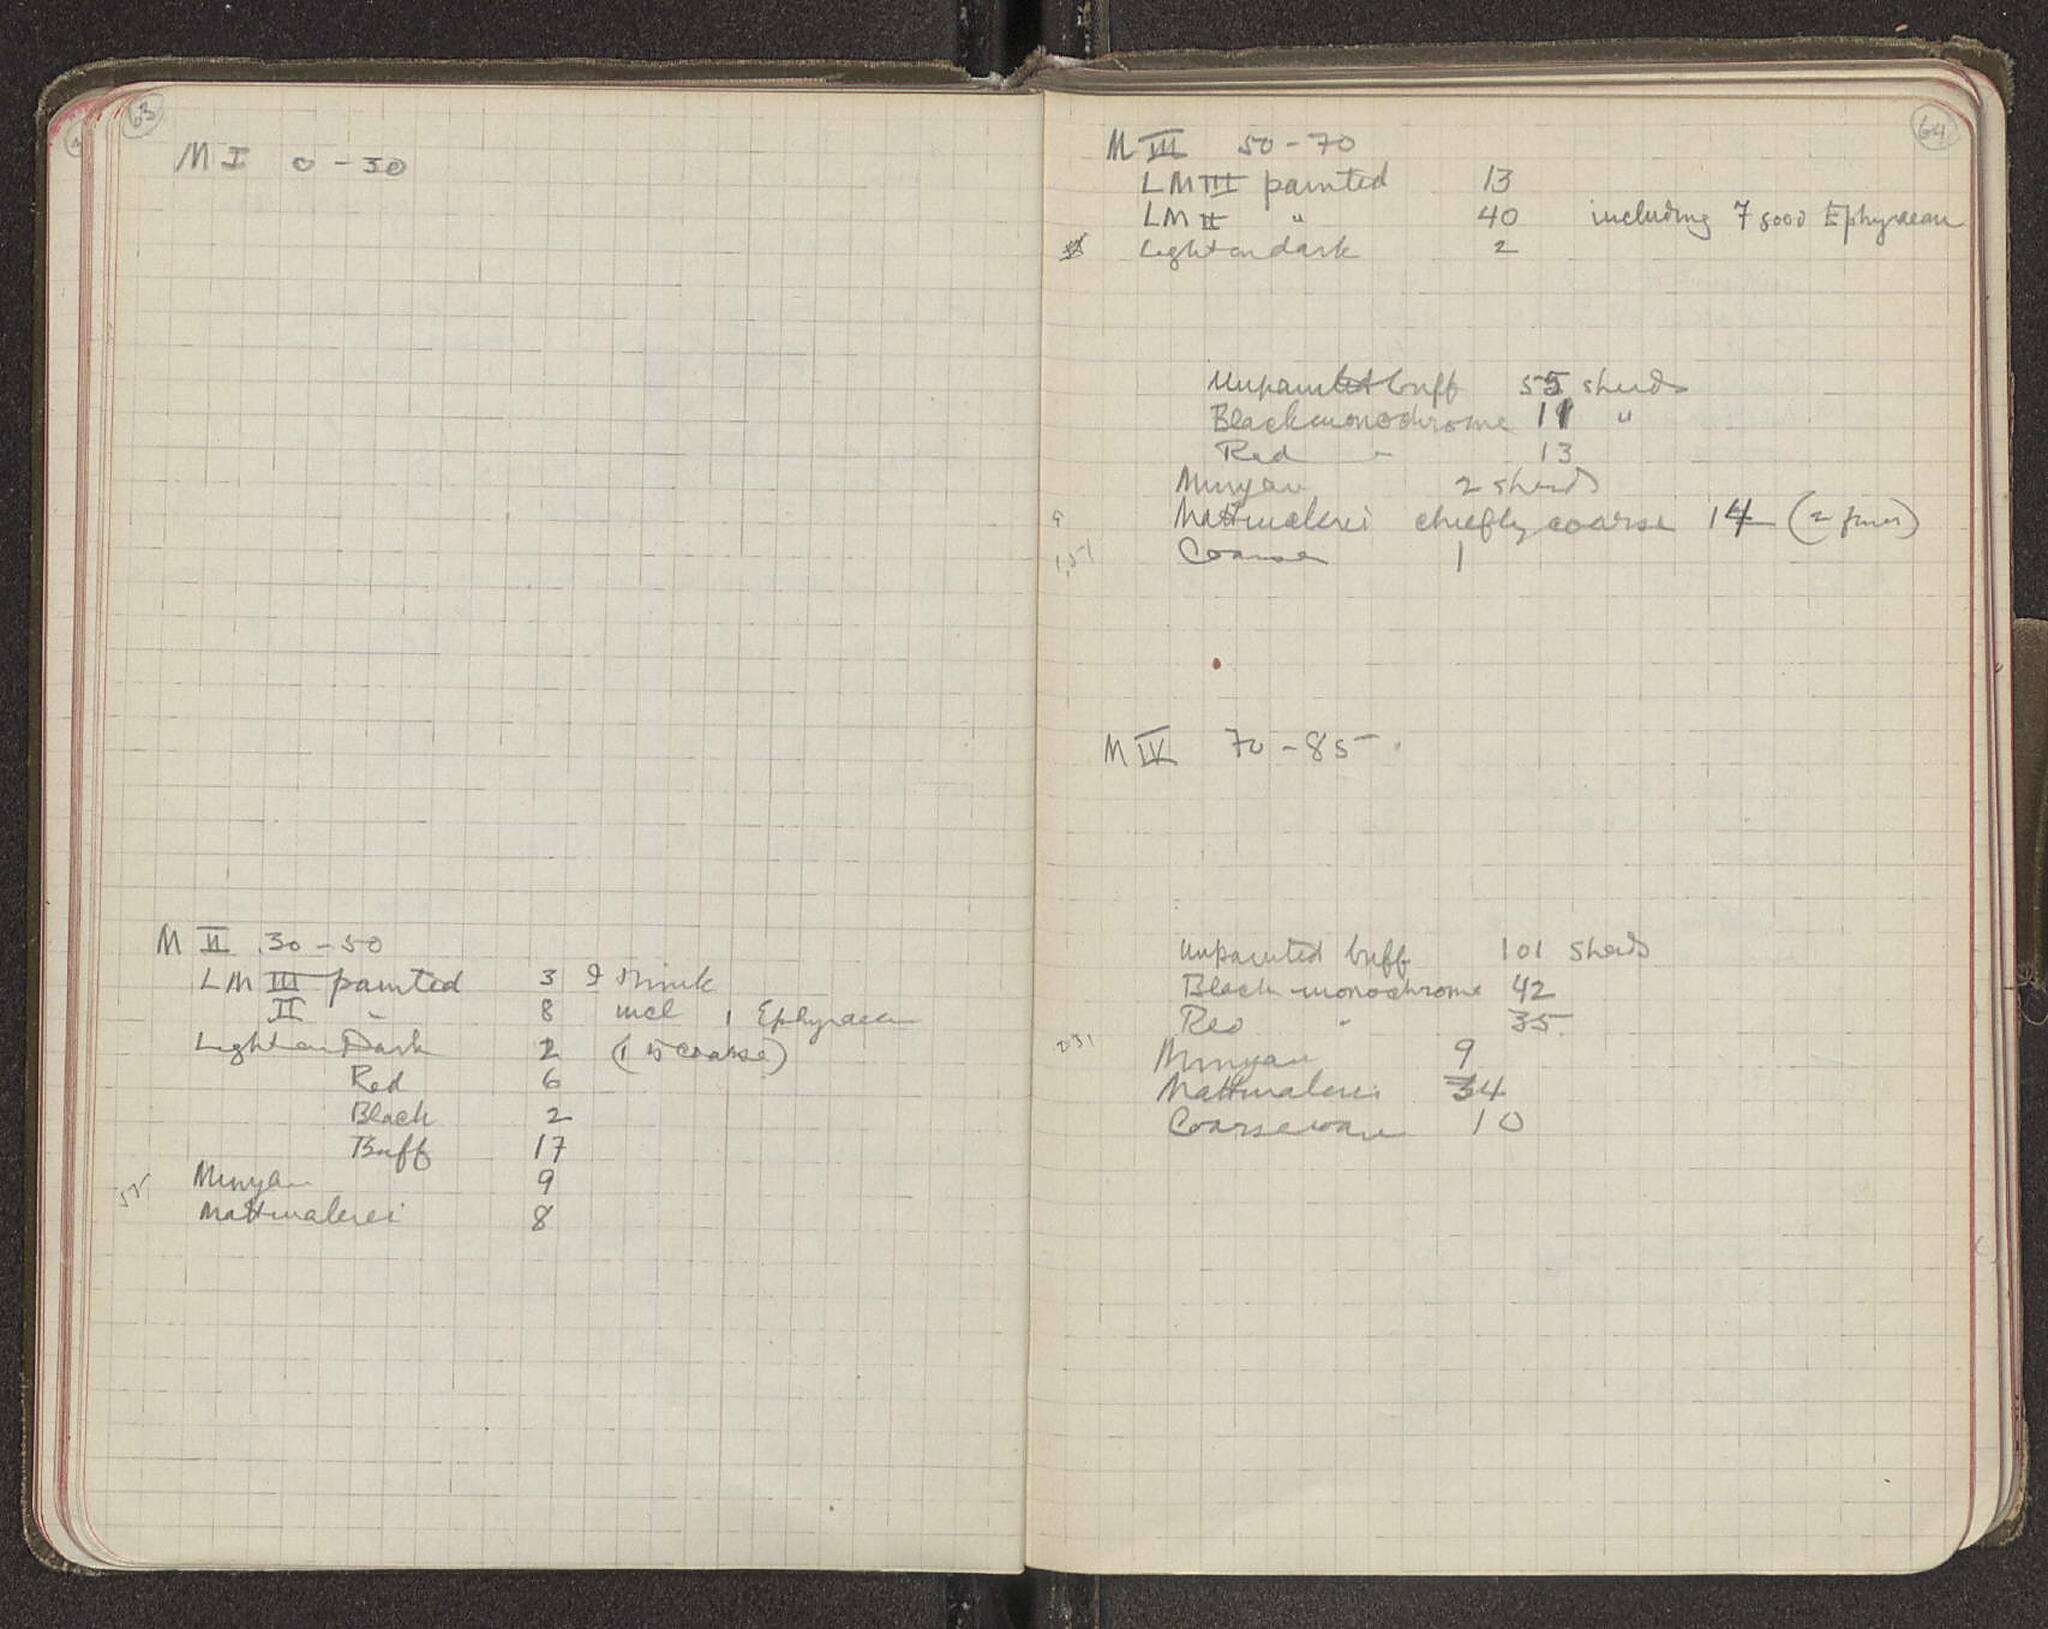 63
M I 0 - 30
M II 30 - 50
LM III painted 3 I think
II " 8 incl 1 Ephyraean
Light on Dark 2 (1 is coarse)
Red 6
Black 2
Buff 17
Minyan 9
55
Mattmalerei 8
64
M III 50 - 70
LM III painted 13
LM II " 40 including 7 good Ephyraean
Light on dark 2
Unpainted buff 55 sherds
Black monochrome 11 "
Red " 13
Minyan 2 sherds
Mattmalerei chiefly coarse 14 (2 finer)
151
Coarse 1
M IV 70 - 85
Unpainted buff 101 sherds
Black monochrome 42
Red " 35
231
Minyan 9
Mattmalerei 34
Coarse ware 10